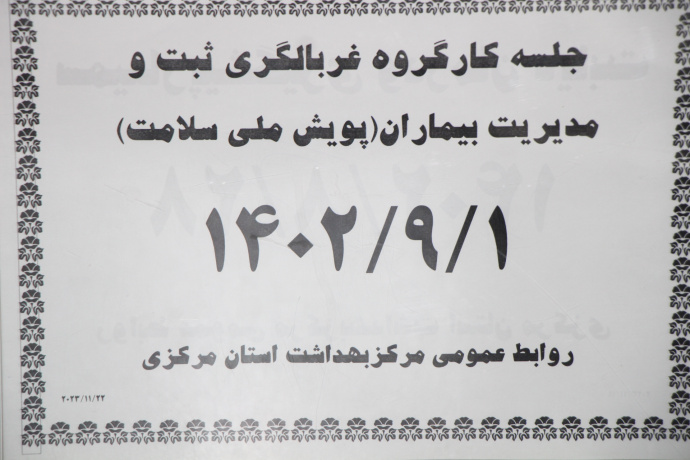 جلسه کارگروه غربالگری ثبت و
مدیریت بیماران(پویش ملی سلامت)
۱۴۰۲/۹/۱
روابط عمومی مرکزبهداشت استان مرکزی
۲۰۲۳/۱۱/۲۲